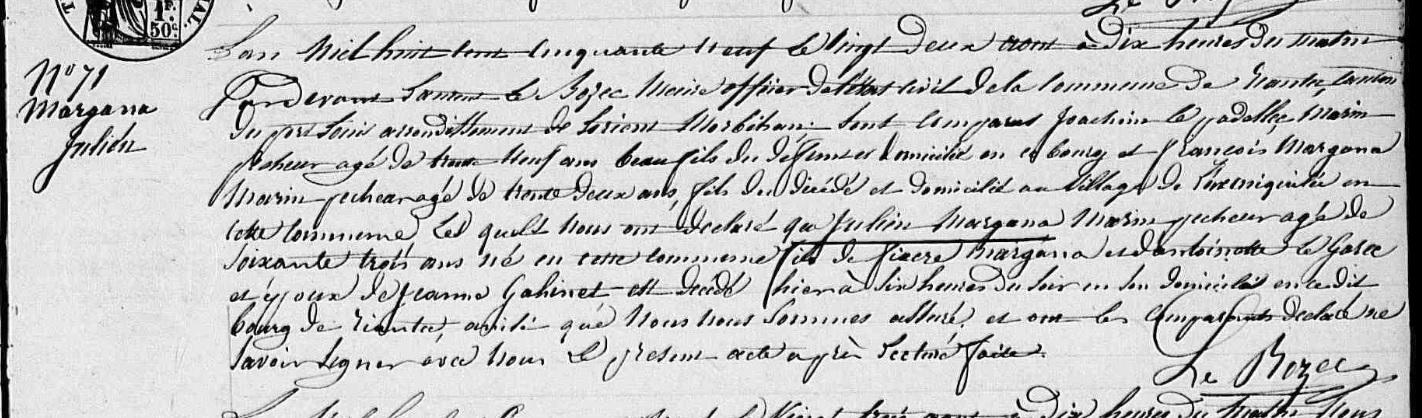 1F.
50c
Le
N° 71
Margana
Julien
L'an Mil huit cent Cinquante Neuf Le Vingt Deux aout à Dix heures du matin
Pardevant Laurent Le Bozec Maire officier de l'état civil de la Commune de Riantec, canton
du port Louis arrondissement de Lorient Morbihan. Sont Comparus Joachim le padellec Marin
pecheur agé de trente Neuf ans beau fils du défunt et domicilié en ce bourg et François Margana
Marin pecheur agé de trente deux ans, fils du décédé et domicilié au Village de en
cette Commune Les quels Nous ont declaré que Julien Margana Marin pecheur agé de
Soixante trois ans né en cette commune fils de fiacre Margana et d'antoinette Le Garec
et époux de Jeanne Gahinet est décédé hier à Six heures du Soir en Son domicile en cedit
bourg de Riantec, ainsi que Nous nous Sommes assuré, et ont les Comparants declaré ne
Savoir Signer avec Nous Le present acte après Lecture faite.
Le Bozec